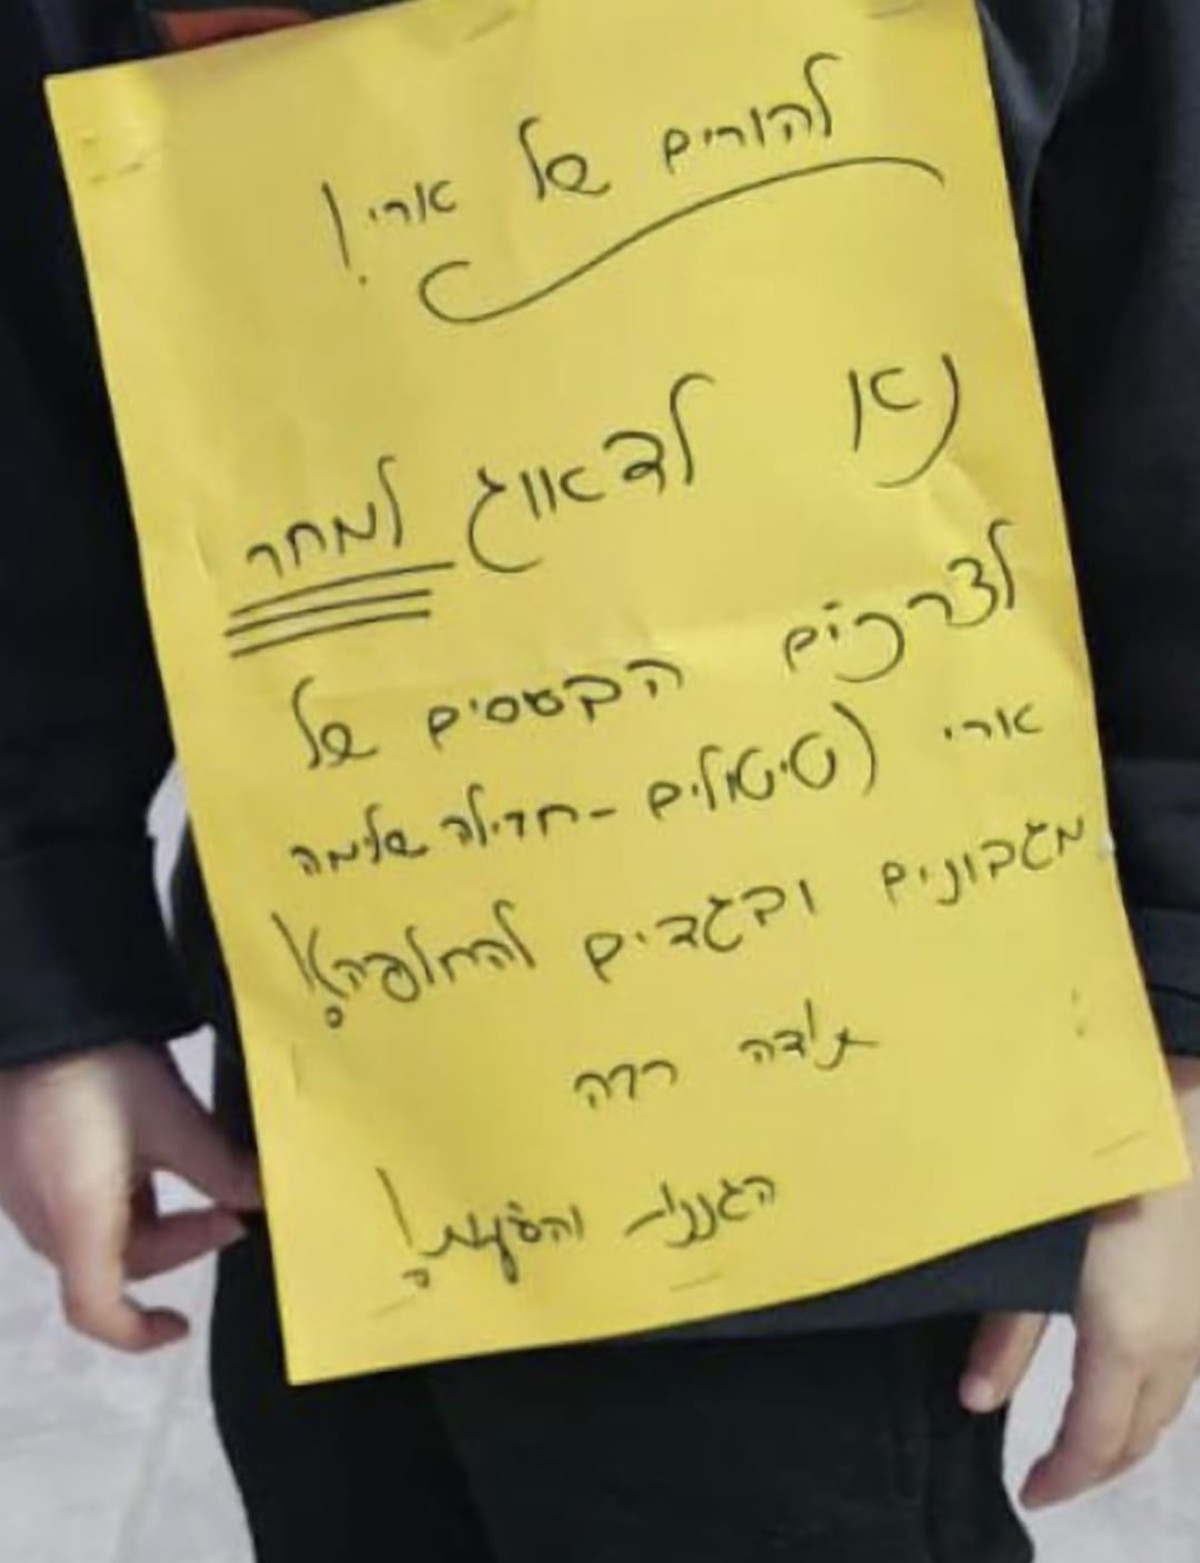 להורים של ארי!
נא לדאוג למחר
לצרכים הבסיסים של
ארי (טיטולים - חבילה שלמה
מגבונים ובגדים להחלפה)!
תודה רבה
הגננת והסייעות!